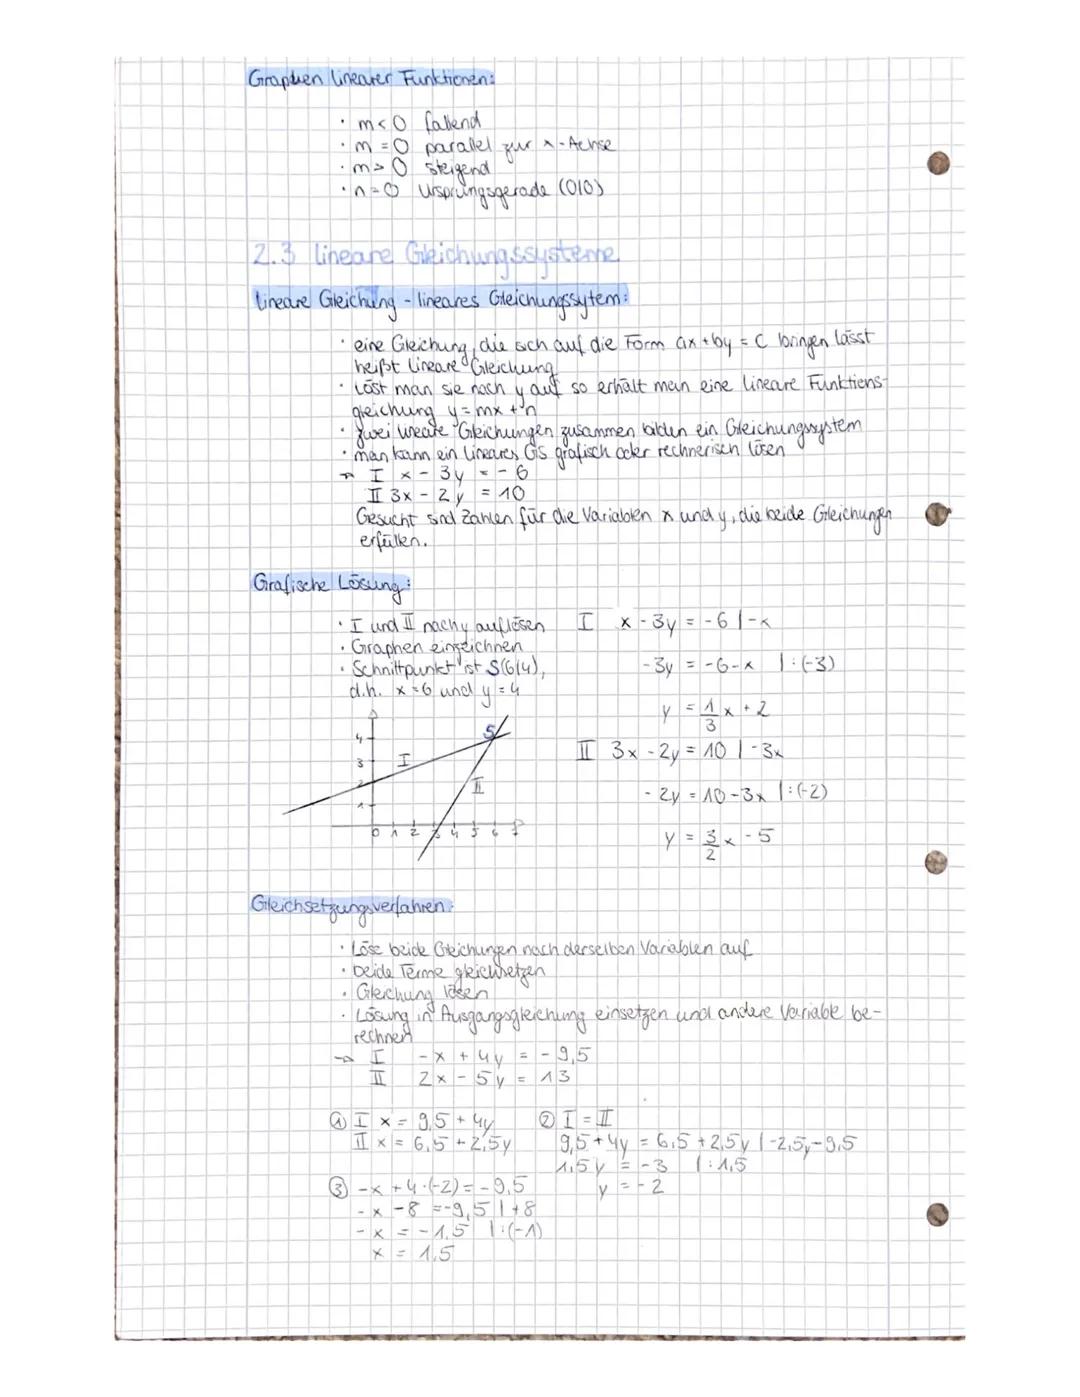 Graphen linearer Funktionen:
· m < 0 fallend
· m = 0 parallel zur x-Achse
· m > 0 steigend
· n = 0 Ursprungsgerade (0|0)
2.3 lineare Gleichungssysteme
lineare Gleichung - lineares Gleichungssytem:
· eine Gleichung, die sich auf die Form ax + by = c bringen lässt
heißt lineare Gleichung
· Löst man sie nach y auf so erhält man eine lineare Funktions-
gleichung y = mx + n
· zwei lineare Gleichungen zusammen bilden ein Gleichungssystem
· man kann ein lineares GS grafisch oder rechnerisch lösen
→ I x - 3y = - 6
II 3x - 2y = 10
Gesucht sind Zahlen für die Variablen x und y, die beide Gleichungen
erfüllen.
Grafische Lösung:
· I und II nach y auflösen
· Graphen einzeichnen
· Schnittpunkt ist S(6|4),
d.h. x = 6 und y = 4
I x - 3y = -6 | -x
-3y = -6 - x | :(-3)
y = 1/3 x + 2
II 3x - 2y = 10 | -3x
- 2y = 10 - 3x | :(-2)
y = 3/2 x - 5
4
3
2
1
0 1 2 3 4 5 6 7
I
II
S
Gleichsetzungsverfahren:
· Löse beide Gleichungen nach derselben Variablen auf
· beide Terme gleichsetzen
· Gleichung lösen
· Lösung in Ausgangsgleichung einsetzen und andere Variable be-
rechnen
→ I -x + 4y = - 9,5
II 2x - 5y = 13
① I x = 9,5 + 4y
II x = 6,5 + 2,5y
② I = II
9,5 + 4y = 6,5 + 2,5y | -2,5y - 9,5
1,5y = -3 | : 1,5
y = - 2
③ -x + 4·(-2) = - 9,5
- x - 8 = -9,5 | +8
- x = - 1,5 | :(-1)
x = 1,5